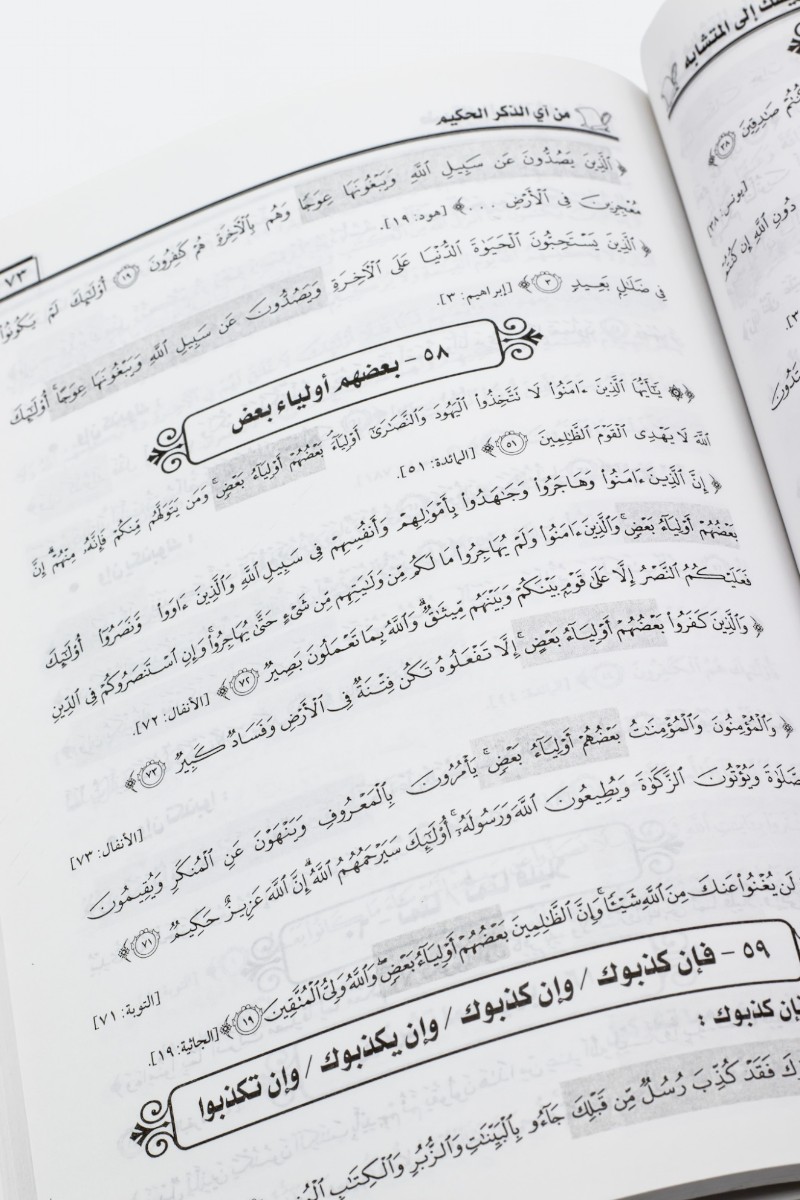 إلى المتشابه
صَٰدِقِينَ ٣٨
[يونس: ٣٨]
دُونِ ٱللَّهِ إِن كُنتُمْ
من آي الذكر الحكيم
٧٣
﴿ ٱلَّذِينَ يَصُدُّونَ عَن سَبِيلِ ٱللَّهِ وَيَبْغُونَهَا عِوَجًا وَهُم بِٱلْآخِرَةِ هُمْ كَٰفِرُونَ ١٩ أُو۟لَٰٓئِكَ لَمْ يَكُونُوا۟
مُعْجِزِينَ فِى ٱلْأَرْضِ ...﴾ [هود: ١٩].
﴿ ٱلَّذِينَ يَسْتَحِبُّونَ ٱلْحَيَوٰةَ ٱلدُّنْيَا عَلَى ٱلْآخِرَةِ وَيَصُدُّونَ عَن سَبِيلِ ٱللَّهِ وَيَبْغُونَهَا عِوَجًا أُو۟لَٰٓئِكَ
فِى ضَلَٰلٍۭ بَعِيدٍ ٣﴾ [إبراهيم: ٣].
٥٨ - بعضهم أولياء بعض
﴿ يَٰٓأَيُّهَا ٱلَّذِينَ ءَامَنُوا۟ لَا تَتَّخِذُوا۟ ٱلْيَهُودَ وَٱلنَّصَٰرَىٰٓ أَوْلِيَآءَ بَعْضُهُمْ أَوْلِيَآءُ بَعْضٍ وَمَن يَتَوَلَّهُم مِّنكُمْ فَإِنَّهُۥ مِنْهُمْ إِنَّ
ٱللَّهَ لَا يَهْدِى ٱلْقَوْمَ ٱلظَّٰلِمِينَ ٥١﴾ [المائدة: ٥١].
﴿ إِنَّ ٱلَّذِينَ ءَامَنُوا۟ وَهَاجَرُوا۟ وَجَٰهَدُوا۟ بِأَمْوَٰلِهِمْ وَأَنفُسِهِمْ فِى سَبِيلِ ٱللَّهِ وَٱلَّذِينَ ءَاوَوا۟ وَّنَصَرُوٓا۟ أُو۟لَٰٓئِكَ
بَعْضُهُمْ أَوْلِيَآءُ بَعْضٍ وَٱلَّذِينَ ءَامَنُوا۟ وَلَمْ يُهَاجِرُوا۟ مَا لَكُم مِّن وَلَٰيَتِهِم مِّن شَىْءٍ حَتَّىٰ يُهَاجِرُوا۟ وَإِنِ ٱسْتَنصَرُوكُمْ فِى ٱلدِّينِ
فَعَلَيْكُمُ ٱلنَّصْرُ إِلَّا عَلَىٰ قَوْمٍۭ بَيْنَكُمْ وَبَيْنَهُم مِّيثَٰقٌ وَٱللَّهُ بِمَا تَعْمَلُونَ بَصِيرٌ ٧٢﴾ [الأنفال: ٧٢].
﴿ وَٱلَّذِينَ كَفَرُوا۟ بَعْضُهُمْ أَوْلِيَآءُ بَعْضٍ إِلَّا تَفْعَلُوهُ تَكُن فِتْنَةٌ فِى ٱلْأَرْضِ وَفَسَادٌ كَبِيرٌ ٧٣﴾
[الأنفال: ٧٣]
﴿ وَٱلْمُؤْمِنُونَ وَٱلْمُؤْمِنَٰتُ بَعْضُهُمْ أَوْلِيَآءُ بَعْضٍ يَأْمُرُونَ بِٱلْمَعْرُوفِ وَيَنْهَوْنَ عَنِ ٱلْمُنكَرِ وَيُقِيمُونَ
ٱلصَّلَوٰةَ وَيُؤْتُونَ ٱلزَّكَوٰةَ وَيُطِيعُونَ ٱللَّهَ وَرَسُولَهُۥٓ أُو۟لَٰٓئِكَ سَيَرْحَمُهُمُ ٱللَّهُ إِنَّ ٱللَّهَ عَزِيزٌ حَكِيمٌ ٧١﴾
[التوبة: ٧١]
لَن يُغْنُوا۟ عَنكَ مِنَ ٱللَّهِ شَيْـًٔا وَإِنَّ ٱلظَّٰلِمِينَ بَعْضُهُمْ أَوْلِيَآءُ بَعْضٍ وَٱللَّهُ وَلِىُّ ٱلْمُتَّقِينَ ١٩﴾ [الجاثية: ١٩].
٥٩ - فإن كذبوك / وإن كذبوك / وإن يكذبوك / وإن تكذبوا
فإن كذبوك :
فَقَدْ كُذِّبَ رُسُلٌ مِّن قَبْلِكَ جَآءُو بِٱلْبَيِّنَٰتِ وَٱلزُّبُرِ وَٱلْكِتَٰبِ